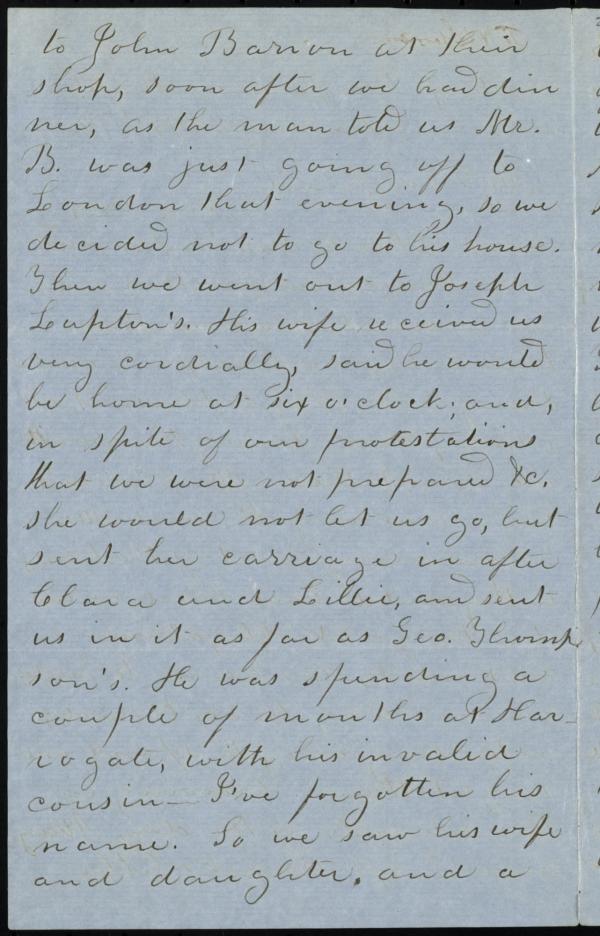 to John Barron at their
shop, soon after we had din
ner, as the man told us Mr.
B. was just going off to
London that evening, so we
decided not to go to his house.
Then we went out to Joseph
Lupton's. His wife received us
very cordially, said he would
be home at six o'clock; and,
in spite of our protestations
that we were not prepared &c.
she would not let us go, but
sent her carriage in after
Clara and Lillie, and sent
us in it as far as Geo. Thomp
son's. He was spending a
couple of months at Har-
rogate, with his invalid
cousin— I've forgotten his
name. So we saw his wife
and daughter, and a